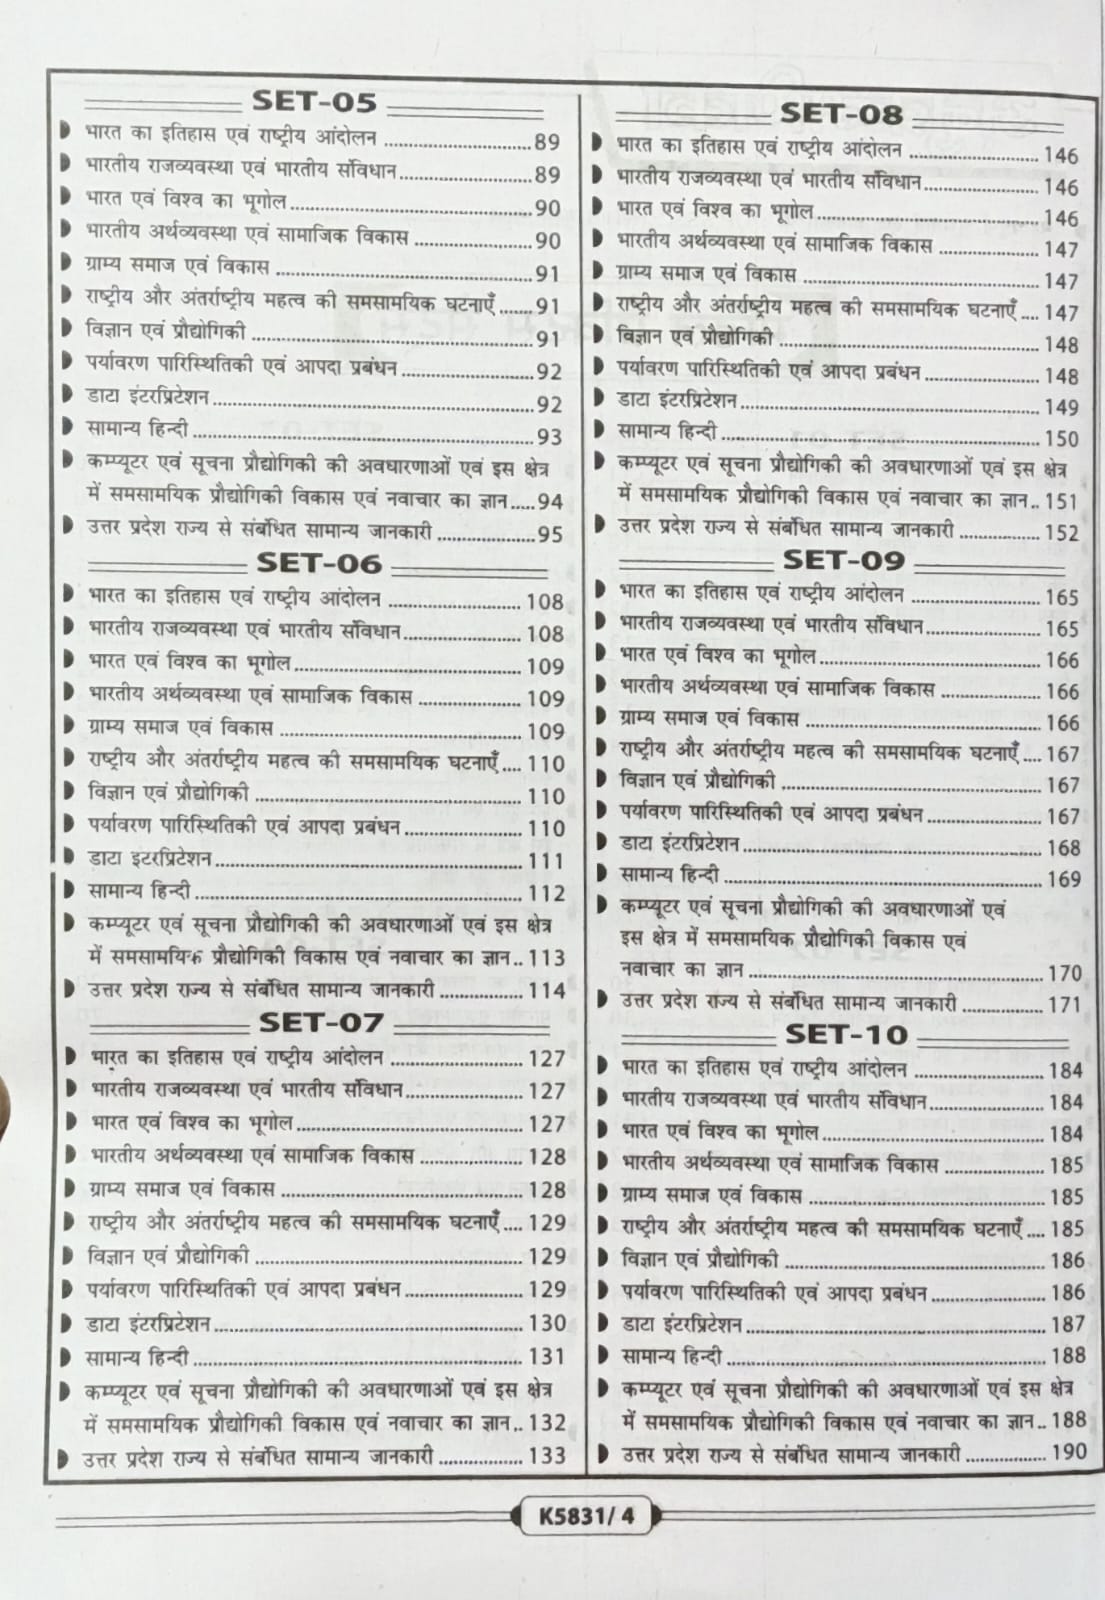 SET-05
भारत का इतिहास एवं राष्ट्रीय आंदोलन ........................89
भारतीय राजव्यवस्था एवं भारतीय संविधान........................89
भारत एवं विश्व का भूगोल........................90
भारतीय अर्थव्यवस्था एवं सामाजिक विकास ........................90
ग्राम्य समाज एवं विकास ........................91
राष्ट्रीय और अंतर्राष्ट्रीय महत्व की समसामयिक घटनाएँ.......91
विज्ञान एवं प्रौद्योगिकी ........................91
पर्यावरण पारिस्थितिकी एवं आपदा प्रबंधन........................92
डाटा इंटरप्रिटेशन........................92
सामान्य हिन्दी ........................93
कम्प्यूटर एवं सूचना प्रौद्योगिकी की अवधारणाओं एवं इस क्षेत्र
में समसामयिक प्रौद्योगिकी विकास एवं नवाचार का ज्ञान.....94
उत्तर प्रदेश राज्य से संबंधित सामान्य जानकारी ...................95
SET-06
भारत का इतिहास एवं राष्ट्रीय आंदोलन ........................ 108
भारतीय राजव्यवस्था एवं भारतीय संविधान........................ 108
भारत एवं विश्व का भूगोल........................ 109
भारतीय अर्थव्यवस्था एवं सामाजिक विकास .................. 109
ग्राम्य समाज एवं विकास ........................ 109
राष्ट्रीय और अंतर्राष्ट्रीय महत्व की समसामयिक घटनाएँ.... 110
विज्ञान एवं प्रौद्योगिकी ........................ 110
पर्यावरण पारिस्थितिकी एवं आपदा प्रबंधन..................... 110
डाटा इंटरप्रिटेशन........................ 111
सामान्य हिन्दी ........................ 112
कम्प्यूटर एवं सूचना प्रौद्योगिकी की अवधारणाओं एवं इस क्षेत्र
में समसामयिक प्रौद्योगिकी विकास एवं नवाचार का ज्ञान.. 113
उत्तर प्रदेश राज्य से संबंधित सामान्य जानकारी ................ 114
SET-07
भारत का इतिहास एवं राष्ट्रीय आंदोलन ........................ 127
भारतीय राजव्यवस्था एवं भारतीय संविधान..................... 127
भारत एवं विश्व का भूगोल........................ 127
भारतीय अर्थव्यवस्था एवं सामाजिक विकास .................. 128
ग्राम्य समाज एवं विकास ........................ 128
राष्ट्रीय और अंतर्राष्ट्रीय महत्व की समसामयिक घटनाएँ.... 129
विज्ञान एवं प्रौद्योगिकी ........................ 129
पर्यावरण पारिस्थितिकी एवं आपदा प्रबंधन..................... 129
डाटा इंटरप्रिटेशन........................ 130
सामान्य हिन्दी ........................ 131
कम्प्यूटर एवं सूचना प्रौद्योगिकी की अवधारणाओं एवं इस क्षेत्र
में समसामयिक प्रौद्योगिकी विकास एवं नवाचार का ज्ञान.. 132
उत्तर प्रदेश राज्य से संबंधित सामान्य जानकारी ................ 133
SET-08
भारत का इतिहास एवं राष्ट्रीय आंदोलन ........................ 146
भारतीय राजव्यवस्था एवं भारतीय संविधान..................... 146
भारत एवं विश्व का भूगोल........................ 146
भारतीय अर्थव्यवस्था एवं सामाजिक विकास .................. 147
ग्राम्य समाज एवं विकास ........................ 147
राष्ट्रीय और अंतर्राष्ट्रीय महत्व की समसामयिक घटनाएँ.... 147
विज्ञान एवं प्रौद्योगिकी ........................ 148
पर्यावरण पारिस्थितिकी एवं आपदा प्रबंधन..................... 148
डाटा इंटरप्रिटेशन........................ 149
सामान्य हिन्दी ........................ 150
कम्प्यूटर एवं सूचना प्रौद्योगिकी की अवधारणाओं एवं इस क्षेत्र
में समसामयिक प्रौद्योगिकी विकास एवं नवाचार का ज्ञान.. 151
उत्तर प्रदेश राज्य से संबंधित सामान्य जानकारी ................ 152
SET-09
भारत का इतिहास एवं राष्ट्रीय आंदोलन ........................ 165
भारतीय राजव्यवस्था एवं भारतीय संविधान..................... 165
भारत एवं विश्व का भूगोल........................ 166
भारतीय अर्थव्यवस्था एवं सामाजिक विकास .................. 166
ग्राम्य समाज एवं विकास ........................ 166
राष्ट्रीय और अंतर्राष्ट्रीय महत्व की समसामयिक घटनाएँ.... 167
विज्ञान एवं प्रौद्योगिकी ........................ 167
पर्यावरण पारिस्थितिकी एवं आपदा प्रबंधन..................... 167
डाटा इंटरप्रिटेशन........................ 168
सामान्य हिन्दी ........................ 169
कम्प्यूटर एवं सूचना प्रौद्योगिकी की अवधारणाओं एवं
इस क्षेत्र में समसामयिक प्रौद्योगिकी विकास एवं
नवाचार का ज्ञान ........................ 170
उत्तर प्रदेश राज्य से संबंधित सामान्य जानकारी ................ 171
SET-10
भारत का इतिहास एवं राष्ट्रीय आंदोलन ........................ 184
भारतीय राजव्यवस्था एवं भारतीय संविधान..................... 184
भारत एवं विश्व का भूगोल........................ 184
भारतीय अर्थव्यवस्था एवं सामाजिक विकास .................. 185
ग्राम्य समाज एवं विकास ........................ 185
राष्ट्रीय और अंतर्राष्ट्रीय महत्व की समसामयिक घटनाएँ.... 185
विज्ञान एवं प्रौद्योगिकी ........................ 186
पर्यावरण पारिस्थितिकी एवं आपदा प्रबंधन..................... 186
डाटा इंटरप्रिटेशन........................ 187
सामान्य हिन्दी ........................ 188
कम्प्यूटर एवं सूचना प्रौद्योगिकी की अवधारणाओं एवं इस क्षेत्र
में समसामयिक प्रौद्योगिकी विकास एवं नवाचार का ज्ञान.. 188
उत्तर प्रदेश राज्य से संबंधित सामान्य जानकारी ................ 190
K5831/ 4